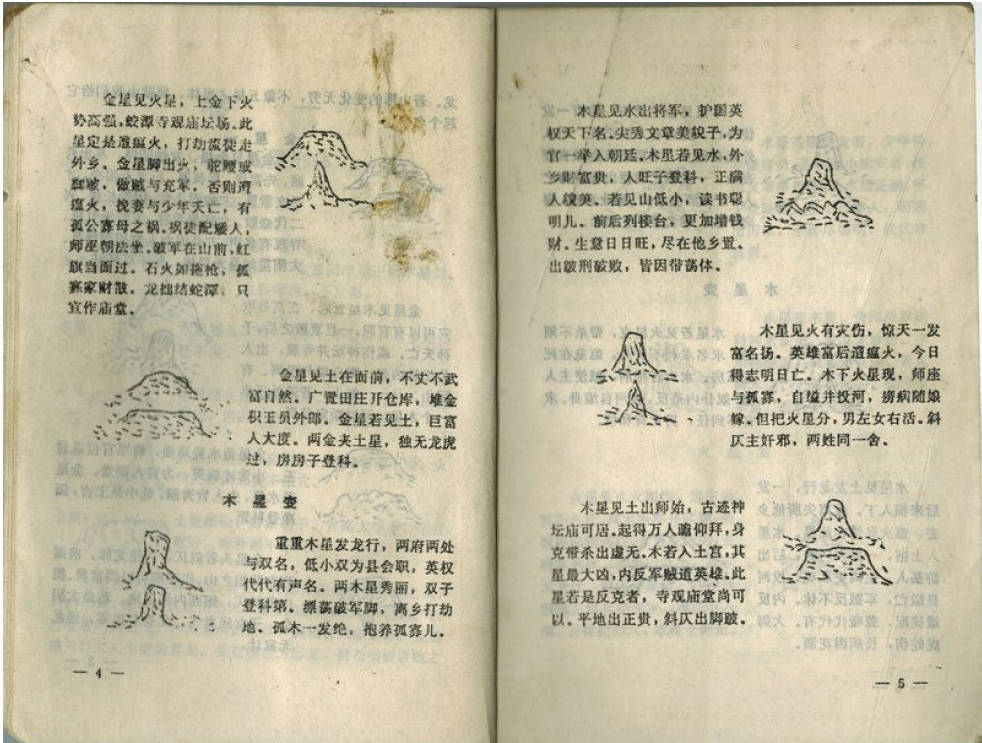 金星见火星，上金下火
势高强，蛟潭寺观庙坛场。此
星定是遭瘟火，打劫流徒走
外乡。金星脚出火，鸵腰或
做贼与充军。否则遭
瘟火，挽妻与少年夭亡，有
孤公寡母之祸。祸徒配矮人，
师巫朝法坐。破军在山前，红
旗当面过。石火如拖枪，孤
寡家财散。龙拙结蛇潭，只
宜作庙堂。
金星见土在面前，不丈不武
富自然。广置田庄开仓库，堆金
积玉员外郎。金星若见土，巨富
人大度。两金夹土星，独无龙虎
过，房房子登科。
木星变
重重木星发龙行，两府两处
与双名，低小双为县会职，英权
代代有声名。两木星秀丽，双子
登科第。漂荡破军脚，离乡打劫
地。孤木一发绝，抱养孤寡儿。
— 4 —
木星见水出将军，护国英
权天下名。尖秀文章美貌子，为
官一举入朝廷。木星若见水，外
乡财富贵，人旺子登科，正满
人貌美。若见山低小，读书聪
明儿。前后列楼台，更加增钱
财。生意日日旺，尽在他乡置。
出跛刑破败，皆因带荡体。
木星见火有灾伤，惊天一发
富名扬。英雄富后遭瘟火，今日
得志明日亡。木下火星现，师座
与孤寡，自缢并投河，痨病随娘
嫁。但把火星分，男左女右活。斜
仄主奸邪，两姓同一舍。
木星见土出师始，古迹神
坛庙可居。起得万人跪仰拜，身
克带杀出虚无。木若入土宫，其
星最大凶，内反军贼道英雄。此
星若是反克者，寺观庙堂尚可
以。平地出正贵，斜仄出脚跛。
— 5 —